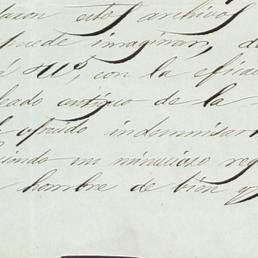 estos archivos
puede imaginar, de
á V.S., con la eficac
leado antiguo de la
ofrecido indemnisar
ciendo un minucioso reg
hombre de bien y